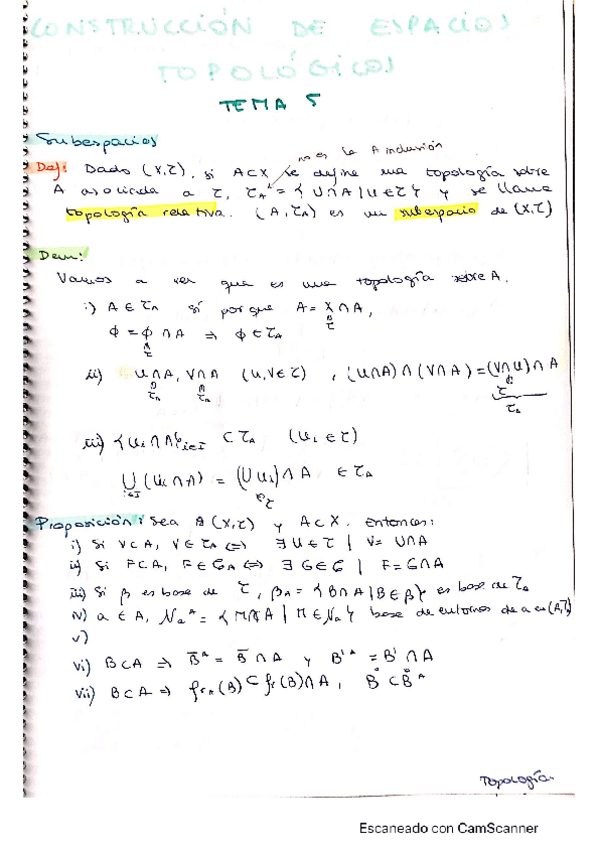 CONSTRUCCIÓN DE ESPACIOS
TOPOLÓGICOS
TEMA 5
Subespacios
no es la A inclusión
Def: Dado (X,τ), si A⊂X se define una topología sobre
A asociada a τ, τ_A = { U∩A | U∈τ } y se llama
topología relativa. (A,τ_A) es un subespacio de (X,τ)
Dem:
Vamos a ver que es una topología sobre A.
i) A∈τ_A sí porque A = X∩A,
∈ τ
φ = φ∩A ⇒ φ∈τ_A
∈ τ
ii) U∩A, V∩A (U,V∈τ) , (U∩A)∩(V∩A) = (V∩U)∩A
∈ τ_A ∈ τ_A ∈ τ
∈ τ_A
iii) {U_i∩A}_{i∈I} ⊂ τ_A (U_i∈τ)
∪_{i∈I} (U_i∩A) = (∪U_i)∩A ∈ τ_A
∈ τ
Proposición: Sea (X,τ) y A⊂X. Entonces:
i) Si V⊂A, V∈τ_A ⇔ ∃U∈τ | V = U∩A
ii) Si F⊂A, F∈C_A ⇔ ∃G∈C | F = G∩A
iii) Si β es base de τ, β_A = {B∩A | B∈β} es base de τ_A
iv) a∈A, N_a^A = {M∩A | M∈N_a} base de entornos de a en (A,τ_A)
v)
vi) B⊂A ⇒ B̄^A = B̄∩A y B'^A = B'∩A
vii) B⊂A ⇒ fr_A(B) ⊂ fr(B)∩A, B̊ ⊂ B̊^A
Topología
Escaneado con CamScanner